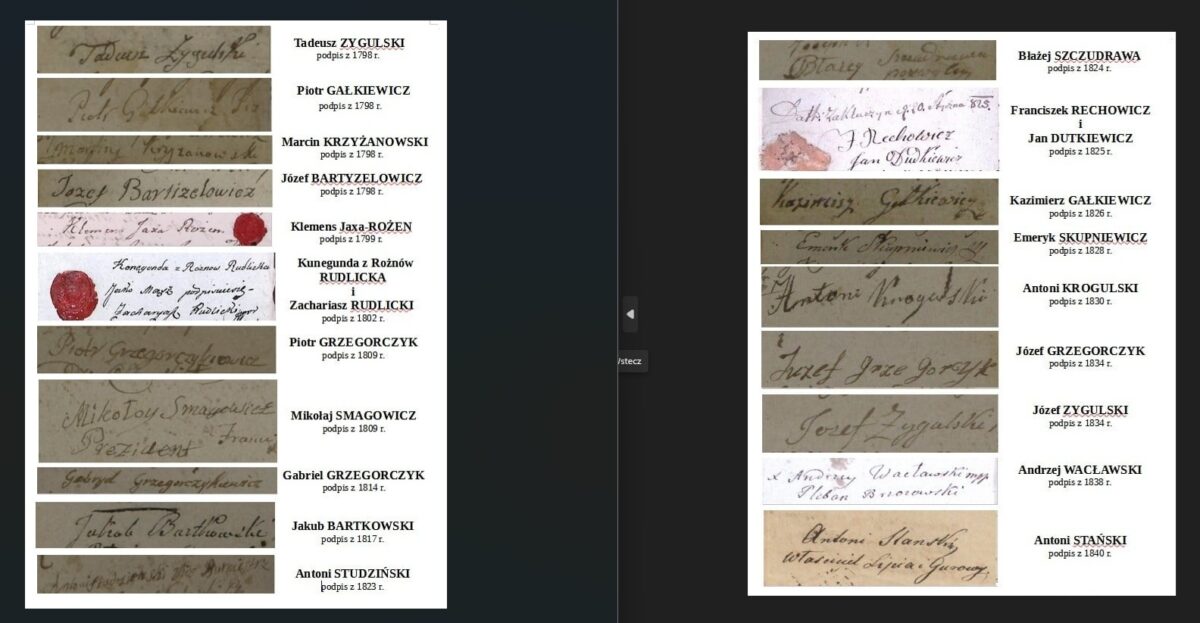 Tadeusz Zygulski
Tadeusz ZYGULSKI
podpis z 1798 r.
Piotr Gałkiewicz
Piotr GAŁKIEWICZ
podpis z 1798 r.
Marcin KRZYŻANOWSKI
podpis z 1798 r.
Jozef Bartizelowicz
Józef BARTYZELOWICZ
podpis z 1798 r.
Klemens Jaxa Rozen
Klemens Jaxa-ROŻEN
podpis z 1799 r.
Konegunda z Roznow Rudlicka
Jako Mąż podpisuię
Zacharyasz Rudlicki
Kunegunda z Rożnów
RUDLICKA
i
Zachariasz RUDLICKI
podpis z 1802 r.
Piotr Grzegorczykiewicz
Piotr GRZEGORCZYK
podpis z 1809 r.
Mikołoy Smagowicz
Prezident
Mikołaj SMAGOWICZ
podpis z 1809 r.
Gabryel Grzegorczykiewicz
Gabriel GRZEGORCZYK
podpis z 1814 r.
Jakob Bartkowski
Jakub BARTKOWSKI
podpis z 1817 r.
Antoni STUDZIŃSKI
podpis z 1823 r.
Wstecz
Błazey
Błażej SZCZUDRAWA
podpis z 1824 r.
F Rechowicz
Jan Dudkiewicz
Franciszek RECHOWICZ
i
Jan DUTKIEWICZ
podpis z 1825 r.
Kazimirz Gałkiewicz
Kazimierz GAŁKIEWICZ
podpis z 1826 r.
Emeryk SKUPNIEWICZ
podpis z 1828 r.
Antoni Krogulski
Antoni KROGULSKI
podpis z 1830 r.
Juzef Grzegorzyk
Józef GRZEGORCZYK
podpis z 1834 r.
Jozef Zygulski
Józef ZYGULSKI
podpis z 1834 r.
x Andrzey Wacławski mpp
Pleban Bnozowski
Andrzej WACŁAWSKI
podpis z 1838 r.
Antoni Stanski
własciciel Lipia i Gurowy
Antoni STAŃSKI
podpis z 1840 r.